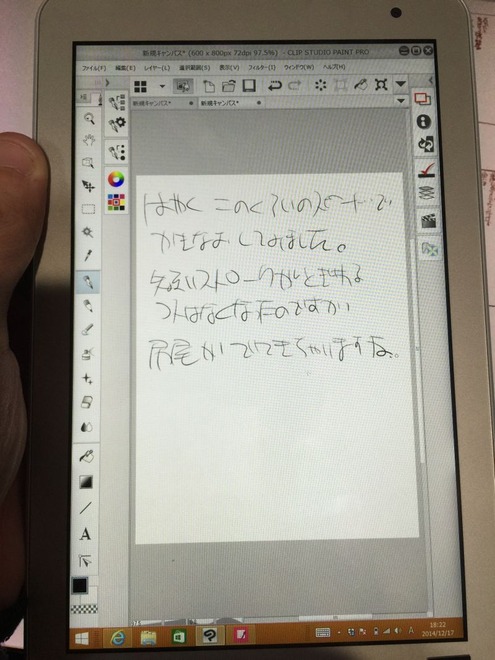 新規キャンバス* (600 x 800px 72dpi 97.5%) - CLIP STUDIO PAINT PRO
ファイル(F) 編集(E) レイヤー(L) 選択範囲(S) 表示(V) フィルター(I) ウィンドウ(W) ヘルプ(H)
新規キャンバス* 新規キャンバス*
はやく このくらいのスピードで
かきなおしてみました。
短いストロークがとぎれる
つんはなくなたのですが
尻尾がでてきちゃいますな。
A
A 18:22
2014/12/17